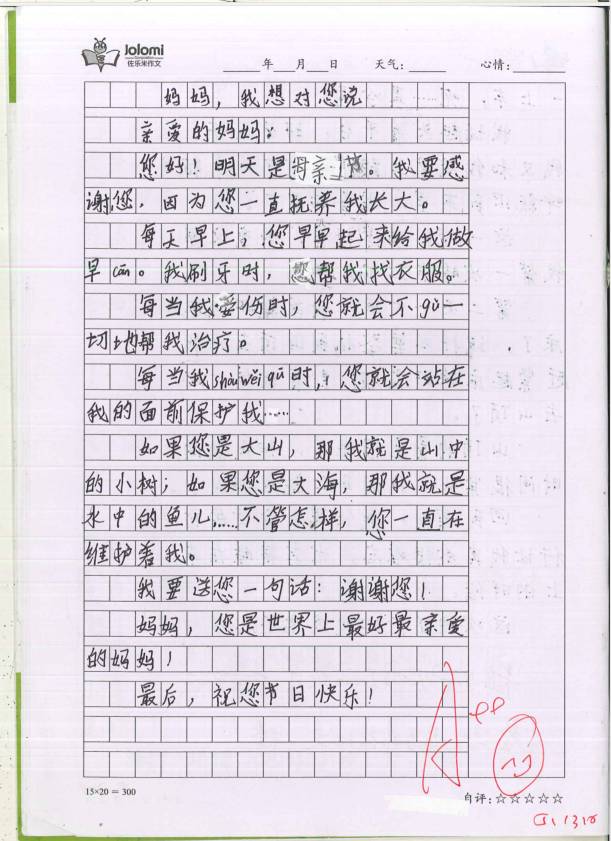 Jolomi
佐乐米作文
年 月 日 天气: 心情:
妈妈，我想对您说
亲爱的妈妈：
您好！明天是母亲节。我要感
谢您，因为您一直抚养我长大。
每天早上，您早早起来给我做
早cān。我刷牙时，您帮我找衣服。
每当我受伤时，您就会不gù一
切地帮我治疗。
每当我shòu wěi qū时，您就会站在
我的面前保护我……
如果您是大山，那我就是山中
的小树；如果您是大海，那我就是
水中的鱼儿，……不管怎样，您一直在
维护着我。
我要送您一句话：谢谢您！
妈妈，您是世界上最好最亲爱
的妈妈！
最后，祝您节日快乐！
A++
15×20＝300
自评：☆☆☆☆☆